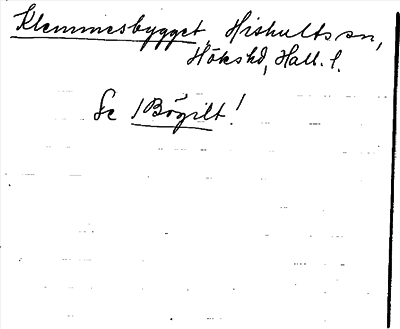 Klemmesbygget, Hishults sn,
Hökshd, Hall. l.
Se 1 Bögilt!